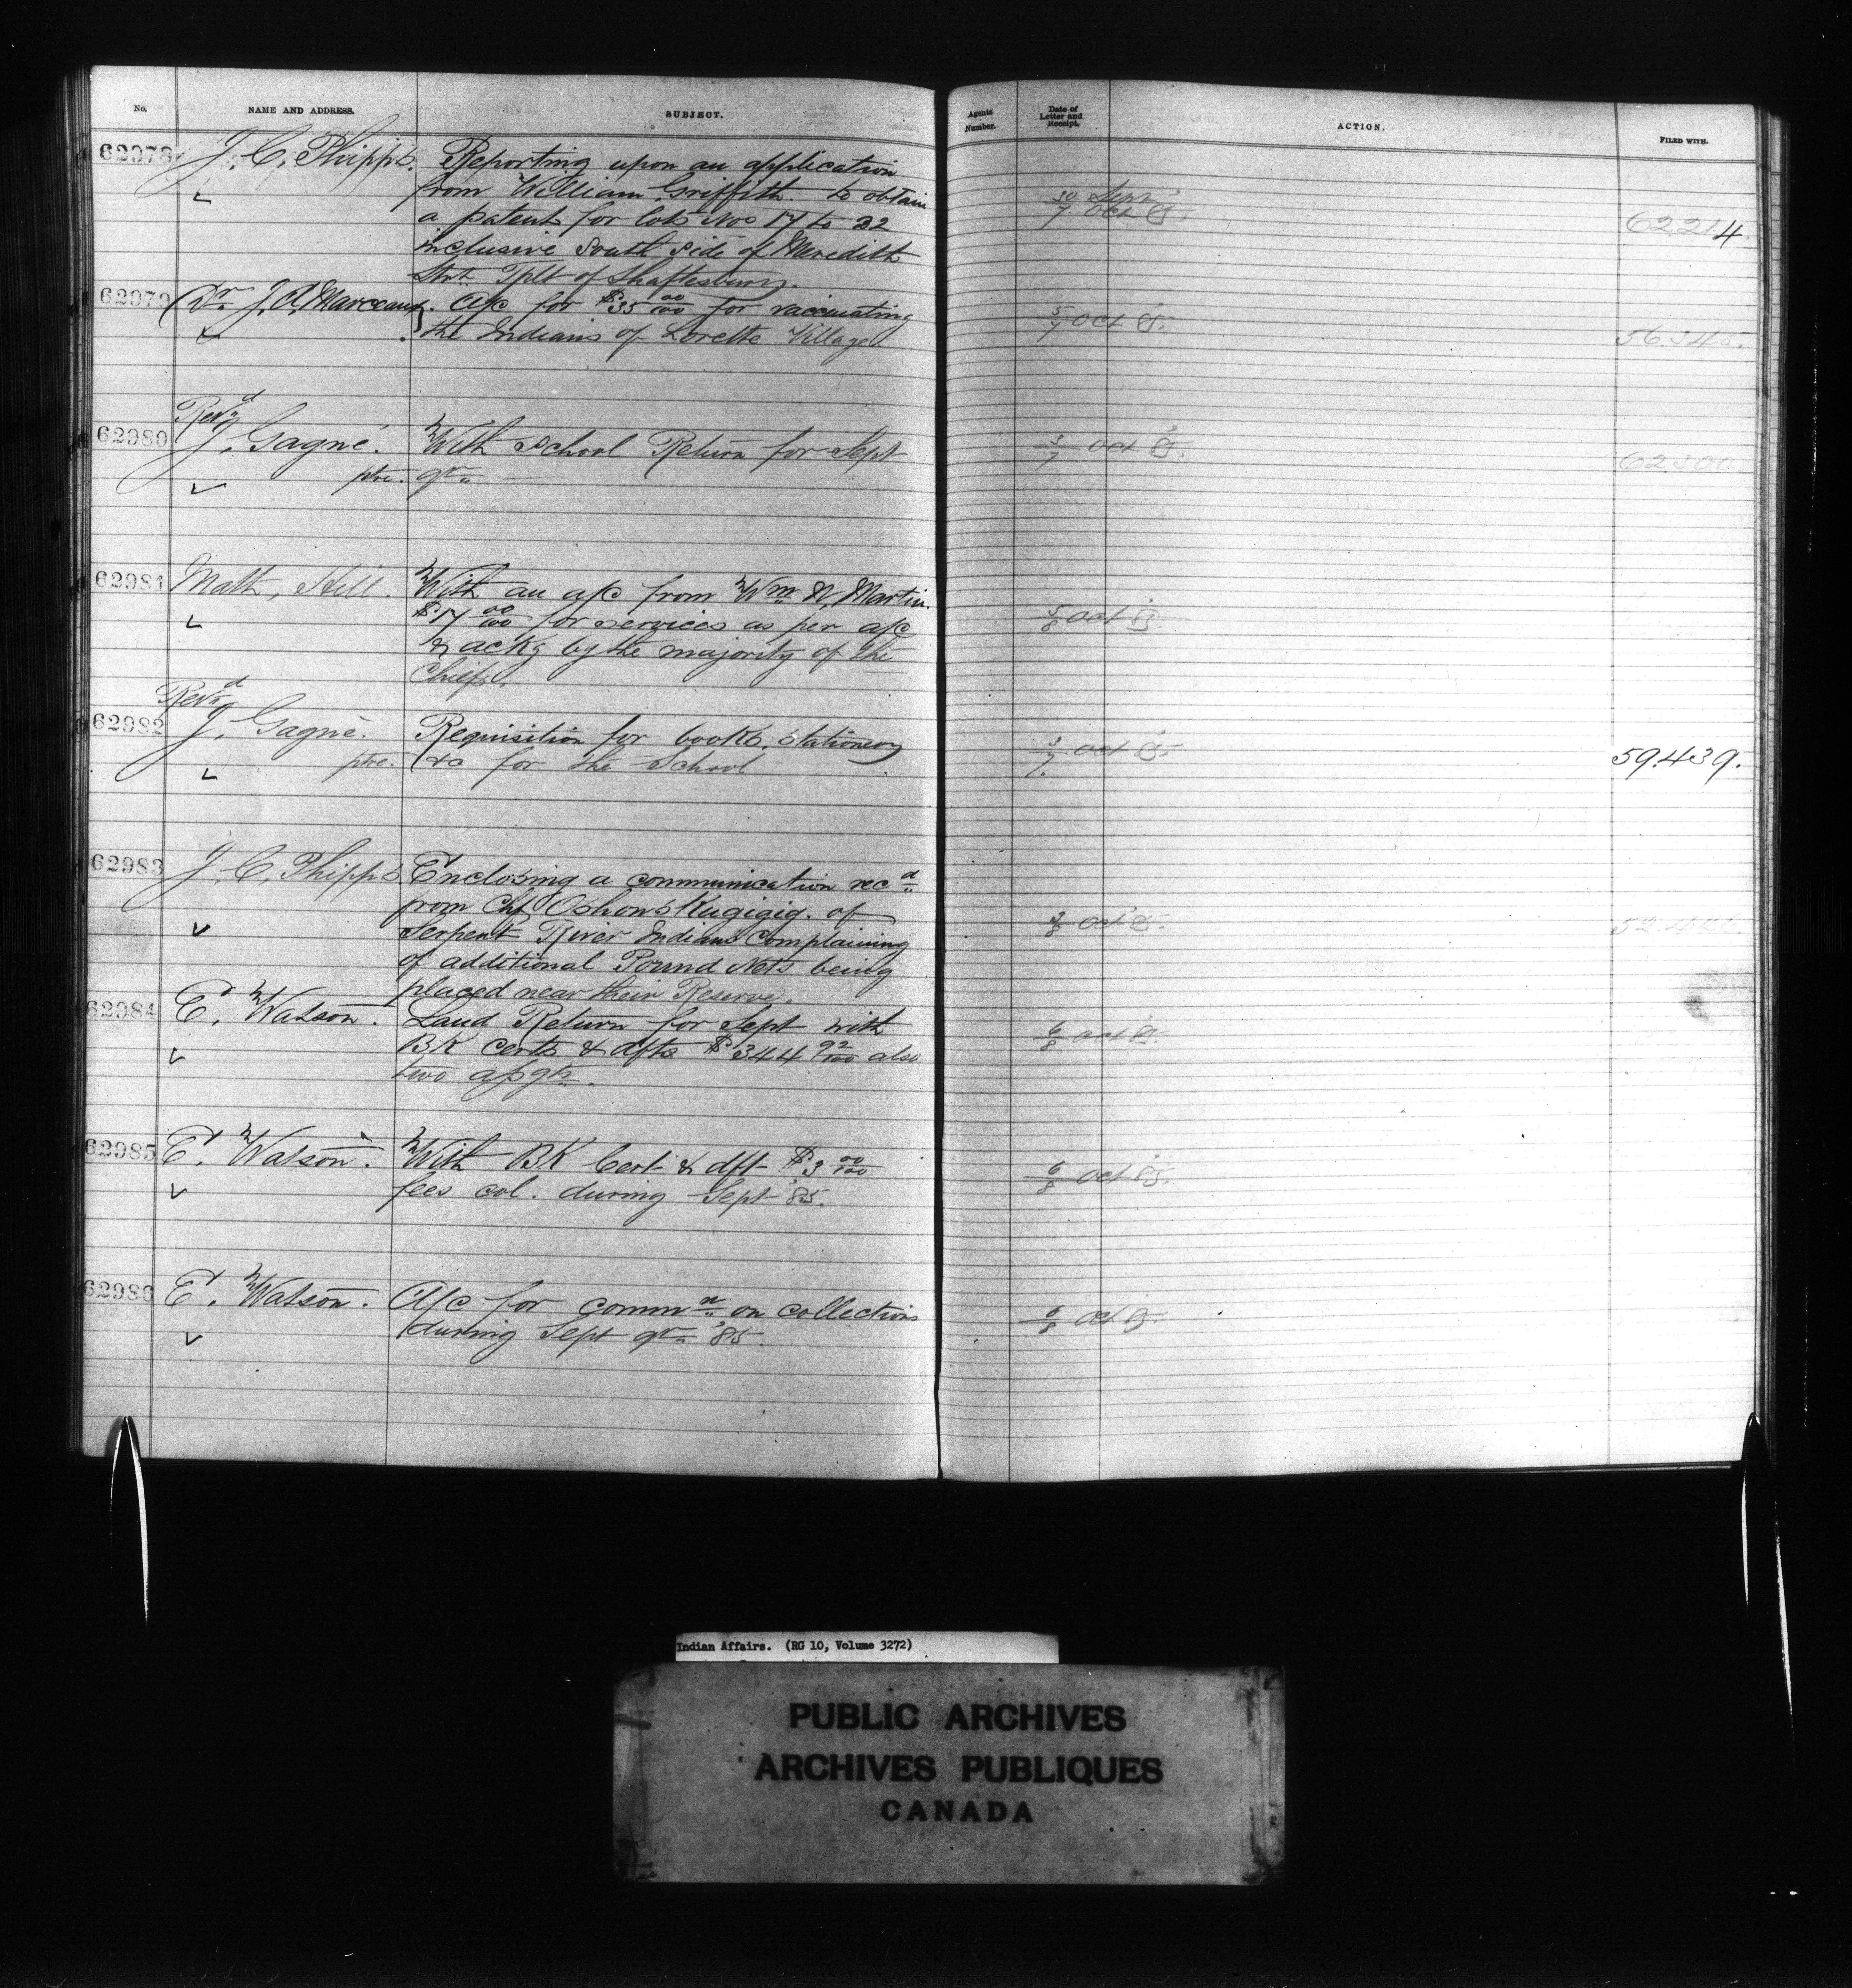 No. NAME AND ADDRESS. SUBJECT. Agents Number. Date of Letter and Receipt. ACTION. FILED WITH.
62978 J. C. Phipps. Reporting upon an application
from William Griffith to obtain
a patent for lots Nos 17 to 22
inclusive South side of Meredith
Strt. Tplt of Shaftesbury.
30 Sept
7 Oct 85
62214.
62979 Dr. J. A. Marceau. A/c for $35 00/100 for vaccinating
the Indians of Lorette Village
5/7 Oct 85.
56.345.
62980 Revd. J. Gagné. ptre.
With School Return for Sept
qr.
3/7 Oct 85.
62300.
62981 Math, Hill. With an a/c from Wm. N. Martin.
$17 00/100 for services as per a/c
& ackg by the majority of the
Chiefs.
5/8 Oct 85.
62982 Revd. J. Gagné. ptre.
Requisition for books, stationery
&c for the School
3/7. Oct 85.
59.439.
62983 J. C. Phipps Enclosing a communication recd.
from Chf of
Serpent River Indians Complaining
of additional Pound Nets being
placed near their Reserve.
3/8 Oct 85.
62984 E. Watson. Land Return for Sept with
BK certs & dfts $344 92/100 also
two
6/8 Oct 85.
62985 E. Watson. With BK Cert & dft $3 00/100
fees col. during Sept '85.
6/8 Oct 85.
62986 E. Watson. A/c for commn. on collections
during Sept qr. '85.
6/8 Oct 85.
Indian Affairs. (RG 10, Volume 3272)
PUBLIC ARCHIVES
ARCHIVES PUBLIQUES
CANADA